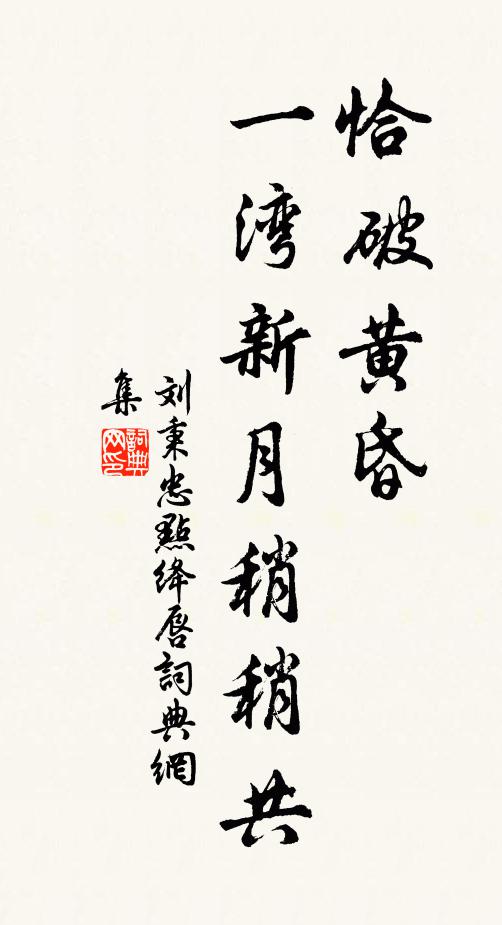 恰破黄昏
一湾新月稍稍共
刘秉忠點绛唇詞典網
集
詞典网印